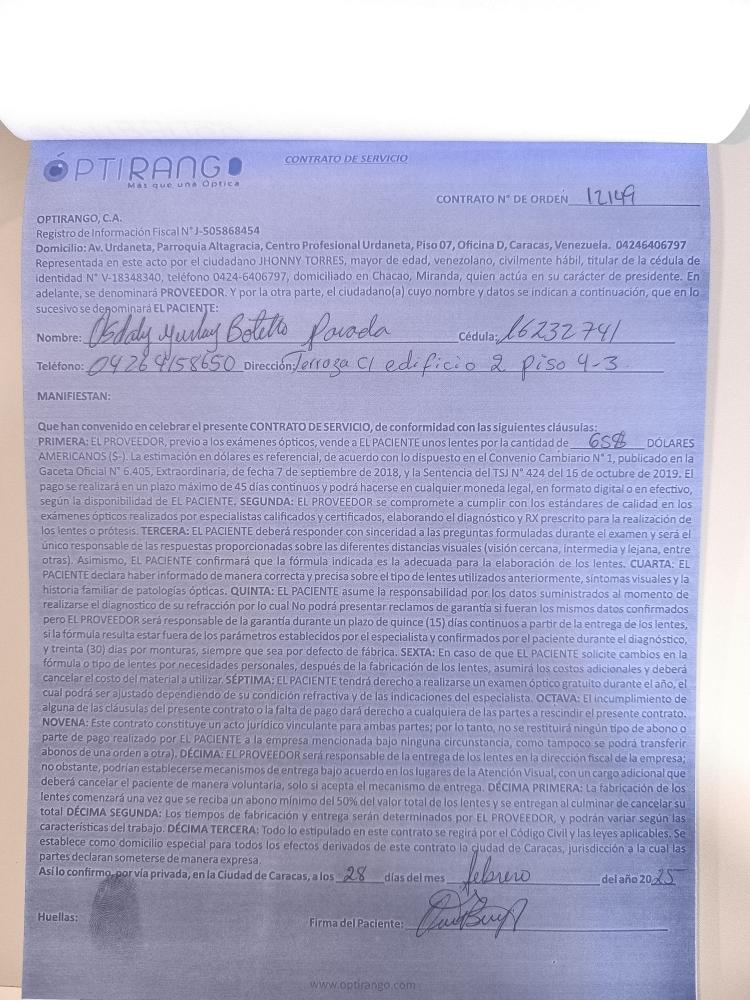 ÓPTIRANGO
Más que una Óptica
CONTRATO DE SERVICIO
CONTRATO N° DE ORDEN 12149
OPTIRANGO, C.A.
Registro de Información Fiscal N° J-505868454
Domicilio: Av. Urdaneta, Parroquia Altagracia, Centro Profesional Urdaneta, Piso 07, Oficina D, Caracas, Venezuela. 04246406797
Representada en este acto por el ciudadano JHONNY TORRES, mayor de edad, venezolano, civilmente hábil, titular de la cédula de
identidad N° V-18348340, teléfono 0424-6406797, domiciliado en Chacao, Miranda, quien actúa en su carácter de presidente. En
adelante, se denominará PROVEEDOR. Y por la otra parte, el ciudadano(a) cuyo nombre y datos se indican a continuación, que en lo
sucesivo se denominará EL PACIENTE:
Nombre: Cédula: 16232741
Teléfono: 04264158650 Dirección: Terraza C1 edificio 2 piso 4-3
MANIFIESTAN:
Que han convenido en celebrar el presente CONTRATO DE SERVICIO, de conformidad con las siguientes cláusulas:
PRIMERA: EL PROVEEDOR, previo a los exámenes ópticos, vende a EL PACIENTE unos lentes por la cantidad de 658$ DÓLARES
AMERICANOS ($-). La estimación en dólares es referencial, de acuerdo con lo dispuesto en el Convenio Cambiario N° 1, publicado en la
Gaceta Oficial N° 6.405, Extraordinaria, de fecha 7 de septiembre de 2018, y la Sentencia del TSJ N° 424 del 16 de octubre de 2019. El
pago se realizará en un plazo máximo de 45 días continuos y podrá hacerse en cualquier moneda legal, en formato digital o en efectivo,
según la disponibilidad de EL PACIENTE. SEGUNDA: EL PROVEEDOR se compromete a cumplir con los estándares de calidad en los
exámenes ópticos realizados por especialistas calificados y certificados, elaborando el diagnóstico y RX prescrito para la realización de
los lentes o prótesis. TERCERA: EL PACIENTE deberá responder con sinceridad a las preguntas formuladas durante el examen y será el
único responsable de las respuestas proporcionadas sobre las diferentes distancias visuales (visión cercana, intermedia y lejana, entre
otras). Asimismo, EL PACIENTE confirmará que la fórmula indicada es la adecuada para la elaboración de los lentes. CUARTA: EL
PACIENTE declara haber informado de manera correcta y precisa sobre el tipo de lentes utilizados anteriormente, síntomas visuales y la
historia familiar de patologías ópticas. QUINTA: EL PACIENTE asume la responsabilidad por los datos suministrados al momento de
realizarse el diagnostico de su refracción por lo cual No podrá presentar reclamos de garantía si fueran los mismos datos confirmados
pero EL PROVEEDOR será responsable de la garantía durante un plazo de quince (15) días continuos a partir de la entrega de los lentes,
si la fórmula resulta estar fuera de los parámetros establecidos por el especialista y confirmados por el paciente durante el diagnóstico,
y treinta (30) días por monturas, siempre que sea por defecto de fábrica. SEXTA: En caso de que EL PACIENTE solicite cambios en la
fórmula o tipo de lentes por necesidades personales, después de la fabricación de los lentes, asumirá los costos adicionales y deberá
cancelar el costo del material a utilizar. SÉPTIMA: EL PACIENTE tendrá derecho a realizarse un examen óptico gratuito durante el año, el
cual podrá ser ajustado dependiendo de su condición refractiva y de las indicaciones del especialista. OCTAVA: El incumplimiento de
alguna de las cláusulas del presente contrato o la falta de pago dará derecho a cualquiera de las partes a rescindir el presente contrato.
NOVENA: Este contrato constituye un acto jurídico vinculante para ambas partes; por lo tanto, no se restituirá ningún tipo de abono o
parte de pago realizado por EL PACIENTE a la empresa mencionada bajo ninguna circunstancia, como tampoco se podrá transferir
abonos de una orden a otra). DÉCIMA: EL PROVEEDOR será responsable de la entrega de los lentes en la dirección fiscal de la empresa;
no obstante, podrían establecerse mecanismos de entrega bajo acuerdo en los lugares de la Atención Visual, con un cargo adicional que
deberá cancelar el paciente de manera voluntaria, solo si acepta el mecanismo de entrega. DÉCIMA PRIMERA: La fabricación de los
lentes comenzará una vez que se reciba un abono mínimo del 50% del valor total de los lentes y se entregan al culminar de cancelar su
total DÉCIMA SEGUNDA: Los tiempos de fabricación y entrega serán determinados por EL PROVEEDOR, y podrán variar según las
características del trabajo. DÉCIMA TERCERA: Todo lo estipulado en este contrato se regirá por el Código Civil y las leyes aplicables. Se
establece como domicilio especial para todos los efectos derivados de este contrato la ciudad de Caracas, jurisdicción a la cual las
partes declaran someterse de manera expresa.
Así lo confirmo, por vía privada, en la Ciudad de Caracas, a los 28 días del mes febrero del año 2025
Huellas: Firma del Paciente:
www.optirango.com